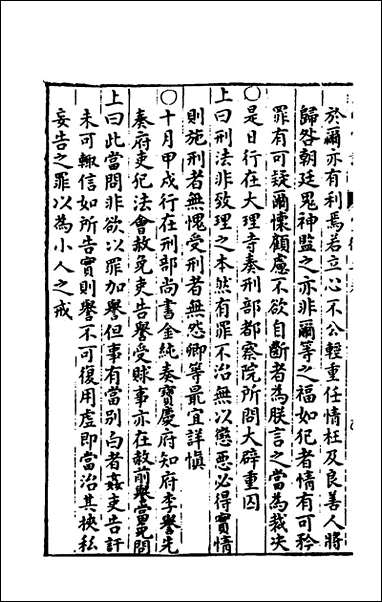 於爾亦有利焉若立心不公輕重任情枉及良善人將
歸咎朝廷鬼神監之亦非爾等之福如犯者情有可矜
罪有可疑爾懷顧慮不欲自斷者為朕言之當為裁决
○是日行在大理寺奏刑部都察院所問大辟重囚
上曰刑法非致理之本然有罪不治無以懲惡必得實情
則施刑者無愧受刑者無怨卿等最宜詳慎
○十月甲戌行在刑部尚書金純奏寶慶府知府李譽先
奏府吏犯法會赦免吏告譽受賕事亦在赦前譽當免問
上曰此當問非欲以罪加譽但事有當別白者姦吏告訐
未可輙信如所告實則譽不可復用虛即當治其挾私
妄告之罪以為小人之戒